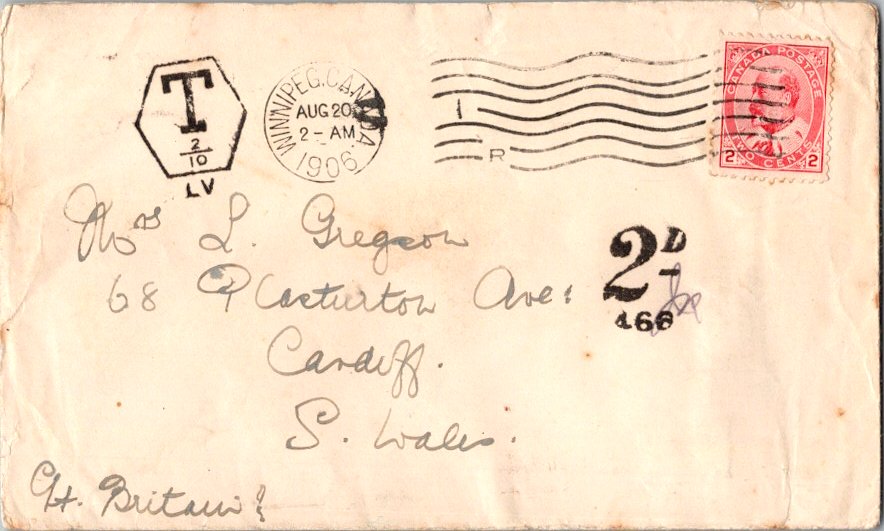 T
2
10
LV
WINNIPEG, CANADA
AUG 20
2 - AM
1906
I
R
CANADA POSTAGE
2 2
TWO CENTS
Mrs L. Gregson
68 Plasturton Ave:
Cardiff.
S. Wales.
Gt. Britain
2D
466